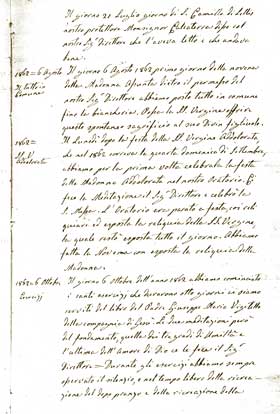 Il giorno 21 Luglio giorno di S. Camillo de Lellis
nostro protettore Monsignor
nostro Sig.r Direttore che l'aveva letto e che andava
bene.
1862 = 6 Agosto
Il tutto in
Comune
Il giorno 6 Agosto 1862 primo giorno della novena
della Madonna Assunta dietro il permesso del
nostro Sig.r Direttore abbiamo posto tutto in comune
fin la biancheria. Maria SS. Vergine offrire
questo spontaneo sagrificio al suo Divin figliuolo.
1862 =
SS. V.
Addolorata
Il Lunedì dopo la festa della SS. Vergine Addolorata,
che nel 1862 correva la quarta Domenica di Settembre,
abbiamo per la prima volta celebrata la festa
della Madonna Addolorata nel nostro Oratorio. Ci
fece la Meditazione il Sig.r Direttore e celebrò la
S. Messa. L'Oratorio era parato a festa, coi
ed esposta la reliquia della SS. Vergine
la quale restò esposta tutto il giorno. Abbiamo
fatta la Novena con esposta la reliquia della
Madonna.
1862 = 6 Ottobre
Esercizj
Il giorno 6 Ottobre dell'anno 1862 abbiamo cominciato
i santi esercizj che durarono otto giorni ci siamo
serviti del libro del Padre Giuseppe Maria
della compagnia di Gesù. Le due meditazioni però
del fondamento, quella dei tre gradi di Umiltà e
l'ultima dell'Amore di Dio ce le fece il Sig.r
Direttore = Durante gli esercizj abbiamo sempre
il silenzio, e nel tempo libero della ricrea-
zione del dopo pranzo e della ricreazione della